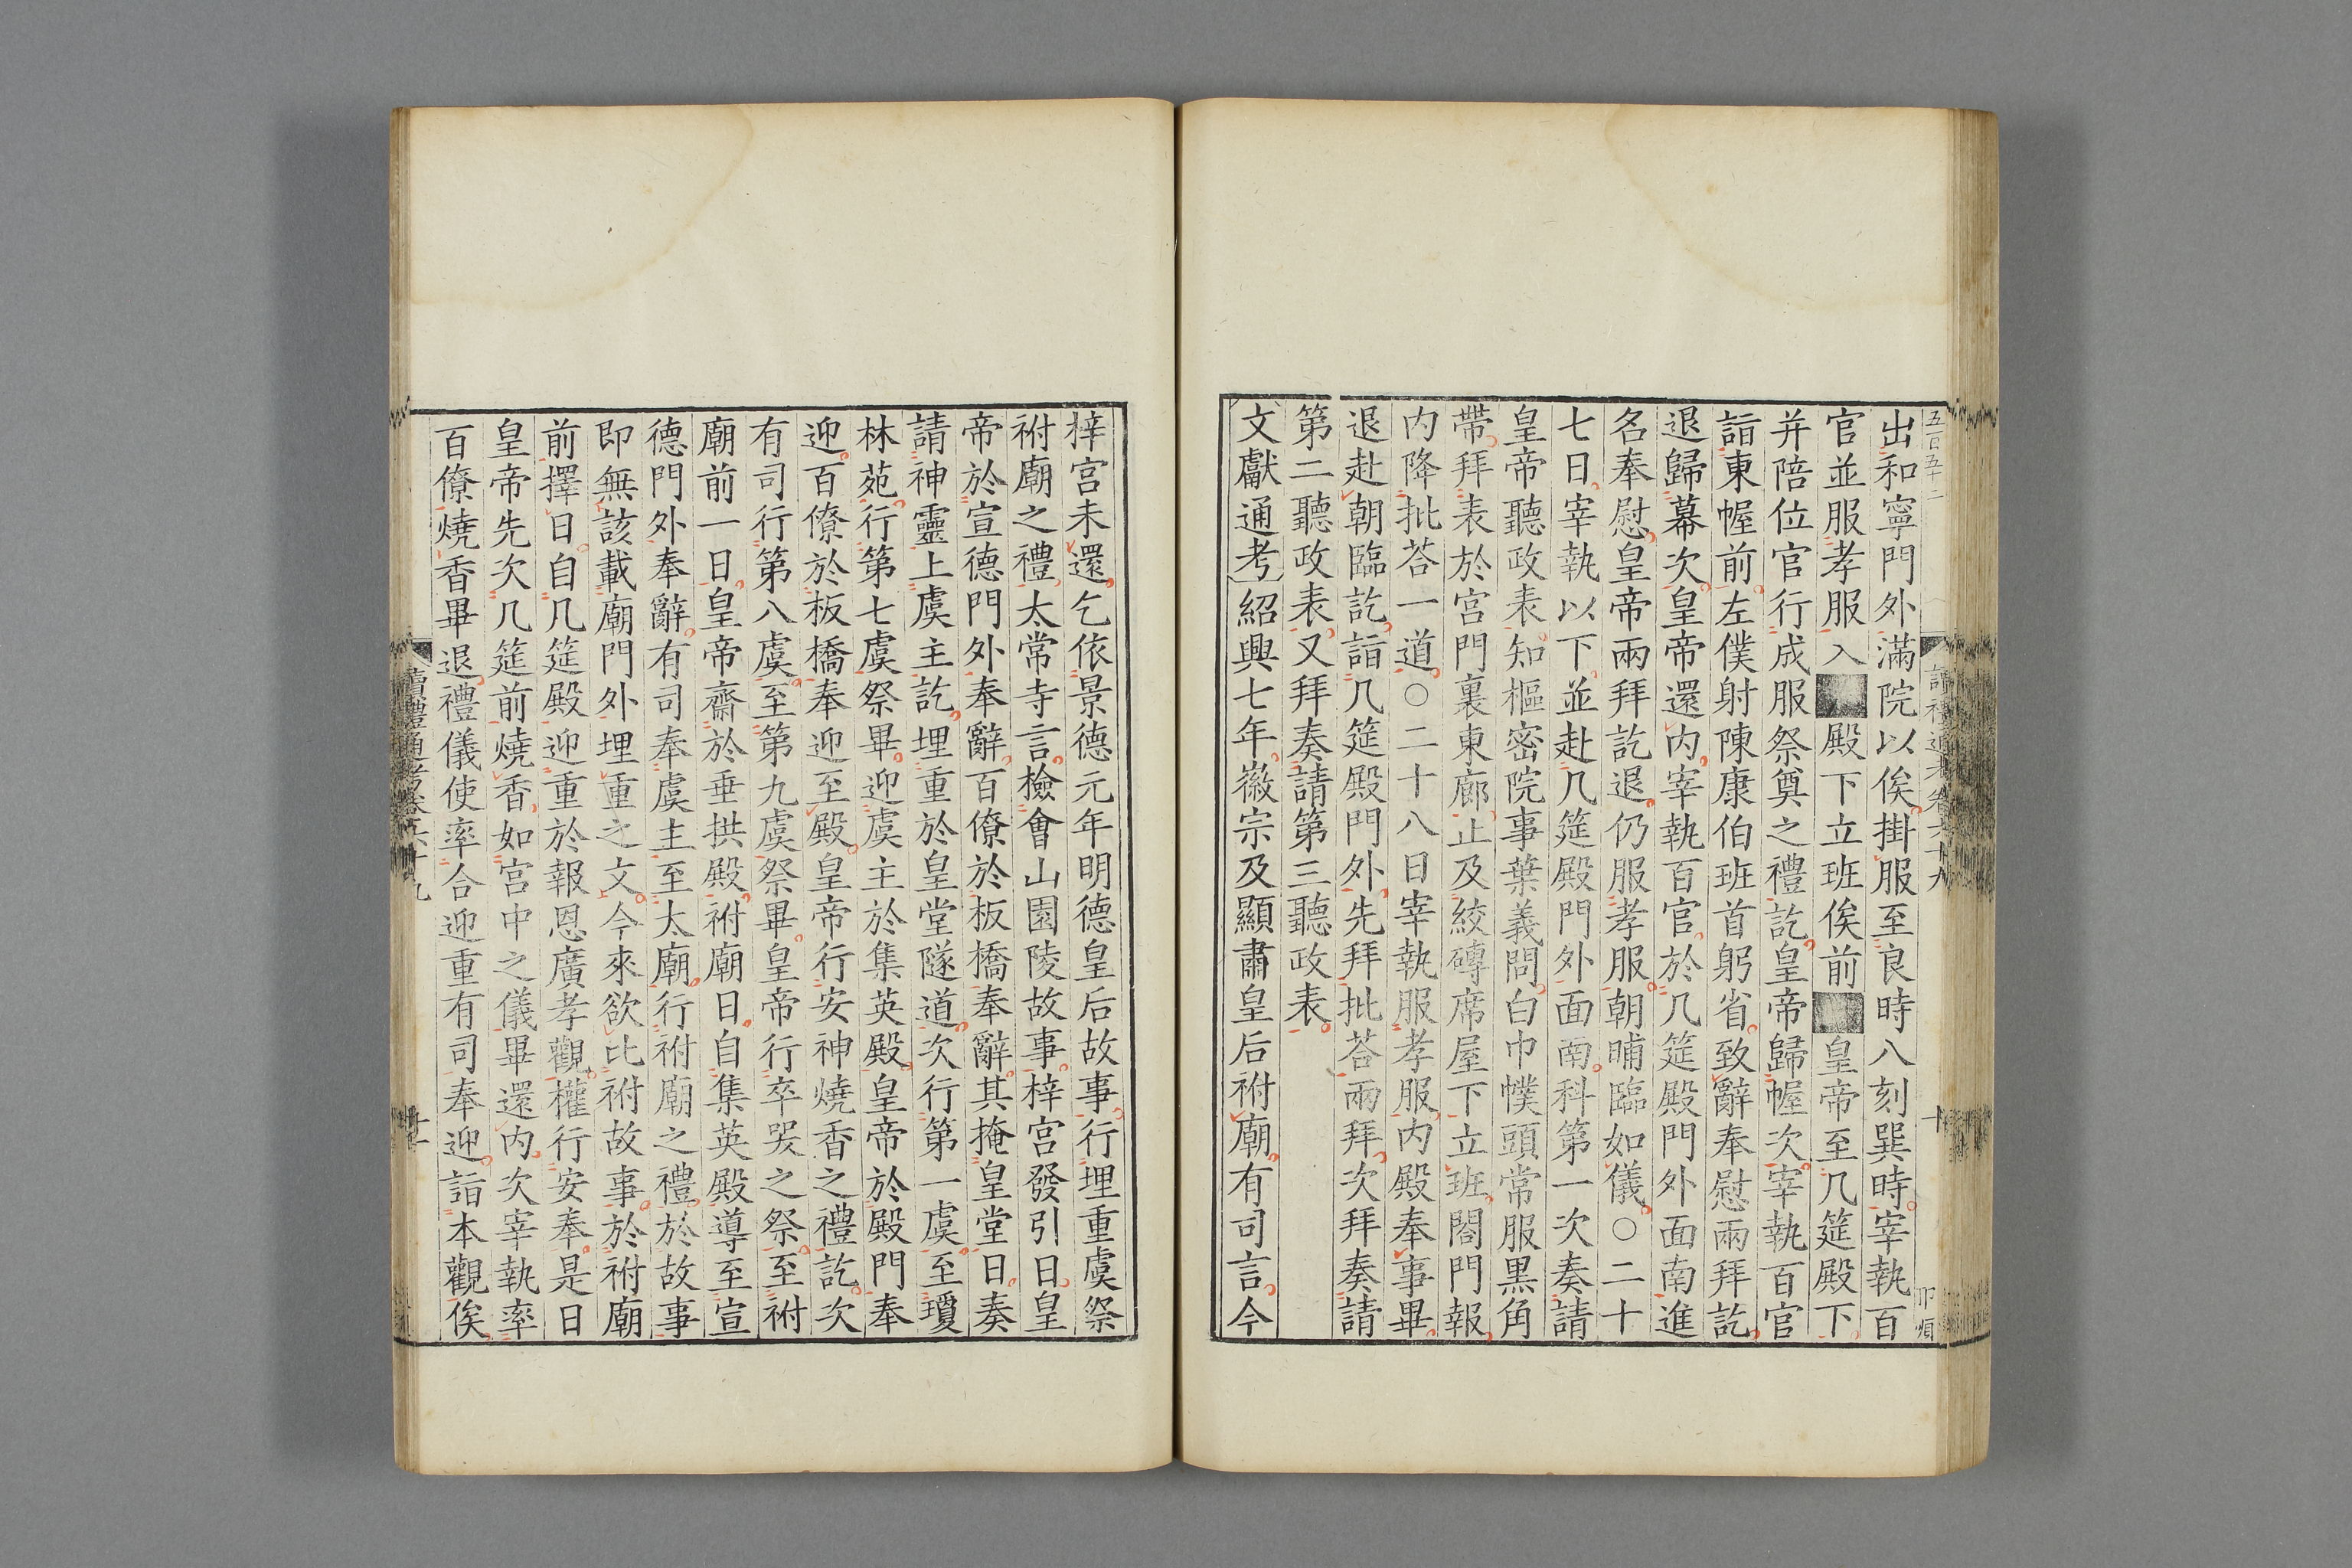 五百五十二
出和寧門外滿院以俟掛服至良時八刻巽時宰執百
官並服孝服入殿下立班俟前皇帝至几筵殿下
并陪位官行成服祭奠之禮訖皇帝歸幄次宰執百官
詣東幄前左僕射陳康伯班首躬省致辭奉慰兩拜訖
退歸幕次皇帝還内宰執百官於几筵殿門外面南進
名奉慰皇帝兩拜訖退仍服孝服朝晡臨如儀○二十
七日宰執以下並赴几筵殿門外面南科第一次奏請
皇帝聽政表知樞密院事葉義問白巾幞頭常服黑角
帶拜表於宫門裏東廊止及絞磚席屋下立班閤門報
内降批荅一道○二十八日宰執服孝服内殿奉事畢
退赴朝臨訖詣几筵殿門外先拜批荅兩拜次拜奏請
第二聽政表又拜奏請第三聽政表
文獻通考紹興七年徽宗及顯肅皇后祔廟有司言今
梓宫未還乞依景德元年明德皇后故事行埋重虞祭
祔廟之禮太常寺言檢會山園陵故事梓宫發引日皇
帝於宣德門外奉辭百僚於板橋奉辭其掩皇堂日奏
請神靈上虞主訖埋重於皇堂隧道次行第一虞至瓊
林苑行第七虞祭畢迎虞主於集英殿皇帝於殿門奉
迎百僚於板橋奉迎至殿皇帝行安神燒香之禮訖次
有司行第八虞至第九虞祭畢皇帝行卒哭之祭至祔
廟前一日皇帝齋於垂拱殿祔廟日自集英殿導至宣
德門外奉辭有司奉虞主至太廟行祔廟之禮於故事
即無該載廟門外埋重之文今來欲比祔故事於祔廟
前擇日自几筵殿迎重於報恩廣孝觀權行安奉是日
皇帝先次几筵前燒香如宫中之儀畢還内次宰執率
百僚燒香畢退禮儀使率合迎重有司奉迎詣本觀俟
讀禮通考卷六十九
十一